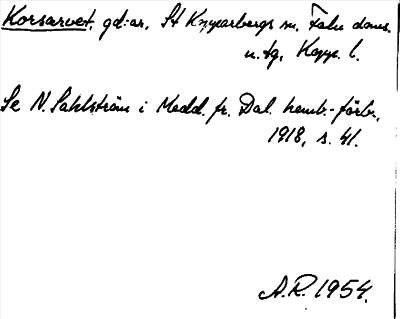 Korsarvet, gd:ar, St Kopparbergs sn, Falu doms.
u. tg, Kopp. l.
Se N. Sahlström i Medd. fr. Dal. hemb.-förb.,
1918, s. 41.
A.R. 1954.